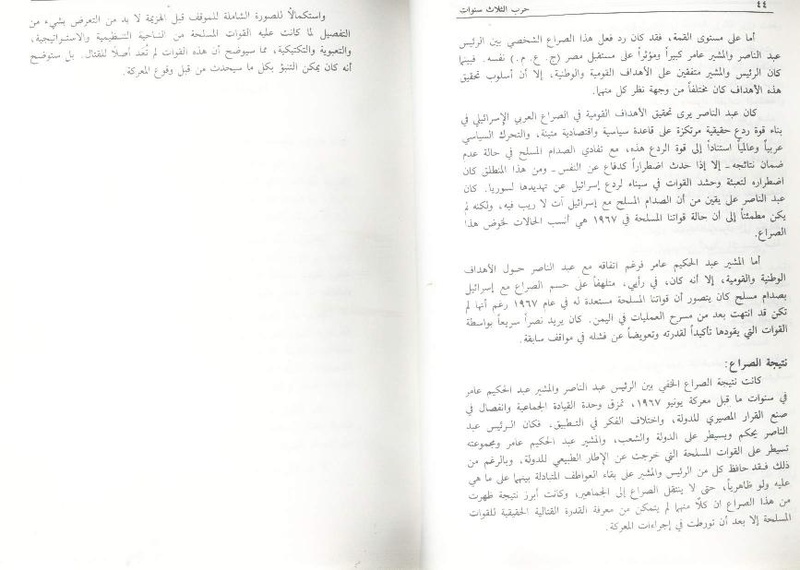 ٤٤
حرب الثلاث سنوات
أما على مستوى القمة، فقد كان رد فعل هذا الصراع الشخصي بين الرئيس
عبد الناصر والمشير عامر كبيراً ومؤثراً على مستقبل مصر (ج. ع. م.) نفسه. فبينما
كان الرئيس والمشير متفقين على الأهداف القومية والوطنية، إلا أن أسلوب تحقيق
هذه الأهداف كان مختلفاً من وجهة نظر كل منهما.
كان عبد الناصر يرى تحقيق الأهداف القومية في الصراع العربي الإسرائيلي في
بناء قوة ردع حقيقية مرتكزة على قاعدة سياسية واقتصادية متينة، والتحرك السياسي
عربياً وعالمياً استناداً إلى قوة الردع هذه، مع تفادي الصدام المسلح في حالة عدم
ضمان نتائجه ـ إلا إذا حدث اضطراراً كدفاع عن النفس ـ ومن هذا المنطلق كان
اضطراره لتعبئة وحشد القوات في سيناء لردع إسرائيل عن تهديدها لسوريا. كان
عبد الناصر على يقين من أن الصدام المسلح مع إسرائيل آت لا ريب فيه، ولكنه لم
يكن مطمئناً إلى أن حالة قواتنا المسلحة في ١٩٦٧ هي أنسب الحالات لخوض هذا
الصراع.
أما المشير عبد الحكيم عامر فرغم اتفاقه مع عبد الناصر حول الأهداف
الوطنية والقومية، إلا أنه كان، في رأيي، متلهفاً على حسم الصراع مع إسرائيل
بصدام مسلح كان يتصور أن قواتنا المسلحة مستعدة له في عام ١٩٦٧ رغم أنها لم
تكن قد انتهت بعد من مسرح العمليات في اليمن. كان يريد نصراً سريعاً بواسطة
القوات التي يقودها تأكيداً لقدرته وتعويضاً عن فشله في مواقف سابقة.
نتيجة الصراع:
كانت نتيجة الصراع الخفي بين الرئيس عبد الناصر والمشير عبد الحكيم عامر
في سنوات ما قبل معركة يونيو ١٩٦٧، تمزق وحدة القيادة الجماعية وانفصال في
صنع القرار المصيري للدولة، واختلاف الفكر في التطبيق. فكان الرئيس عبد
الناصر يحكم ويسيطر على الدولة والشعب، والمشير عبد الحكيم عامر ومجموعته
تسيطر على القوات المسلحة التي خرجت عن الإطار الطبيعي للدولة. وبالرغم من
ذلك فقد حافظ كل من الرئيس والمشير على بقاء العواطف المتبادلة بينهما على ما هي
عليه ولو ظاهرياً، حتى لا ينتقل الصراع إلى الجماهير، وكانت أبرز نتيجة ظهرت
من هذا الصراع ان كلاً منهما لم يتمكن من معرفة القدرة القتالية الحقيقية للقوات
المسلحة إلا بعد أن تورطت في إجراءات المعركة.
واستكمالاً للصورة الشاملة للموقف قبل الهزيمة لا بد من التعرض بشيء من
التفصيل لما كانت عليه القوات المسلحة من الناحية التنظيمية والاستراتيجية،
والتعبوية والتكتيكية، مما سيوضح أن هذه القوات لم تُعَد أصلاً للقتال. بل ستوضح
أنه كان يمكن التنبؤ بكل ما سيحدث من قبل وقوع المعركة.